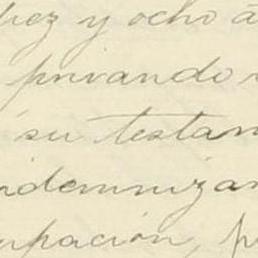 diez y ocho á
privando
su testam
ndemnizan
upación, p